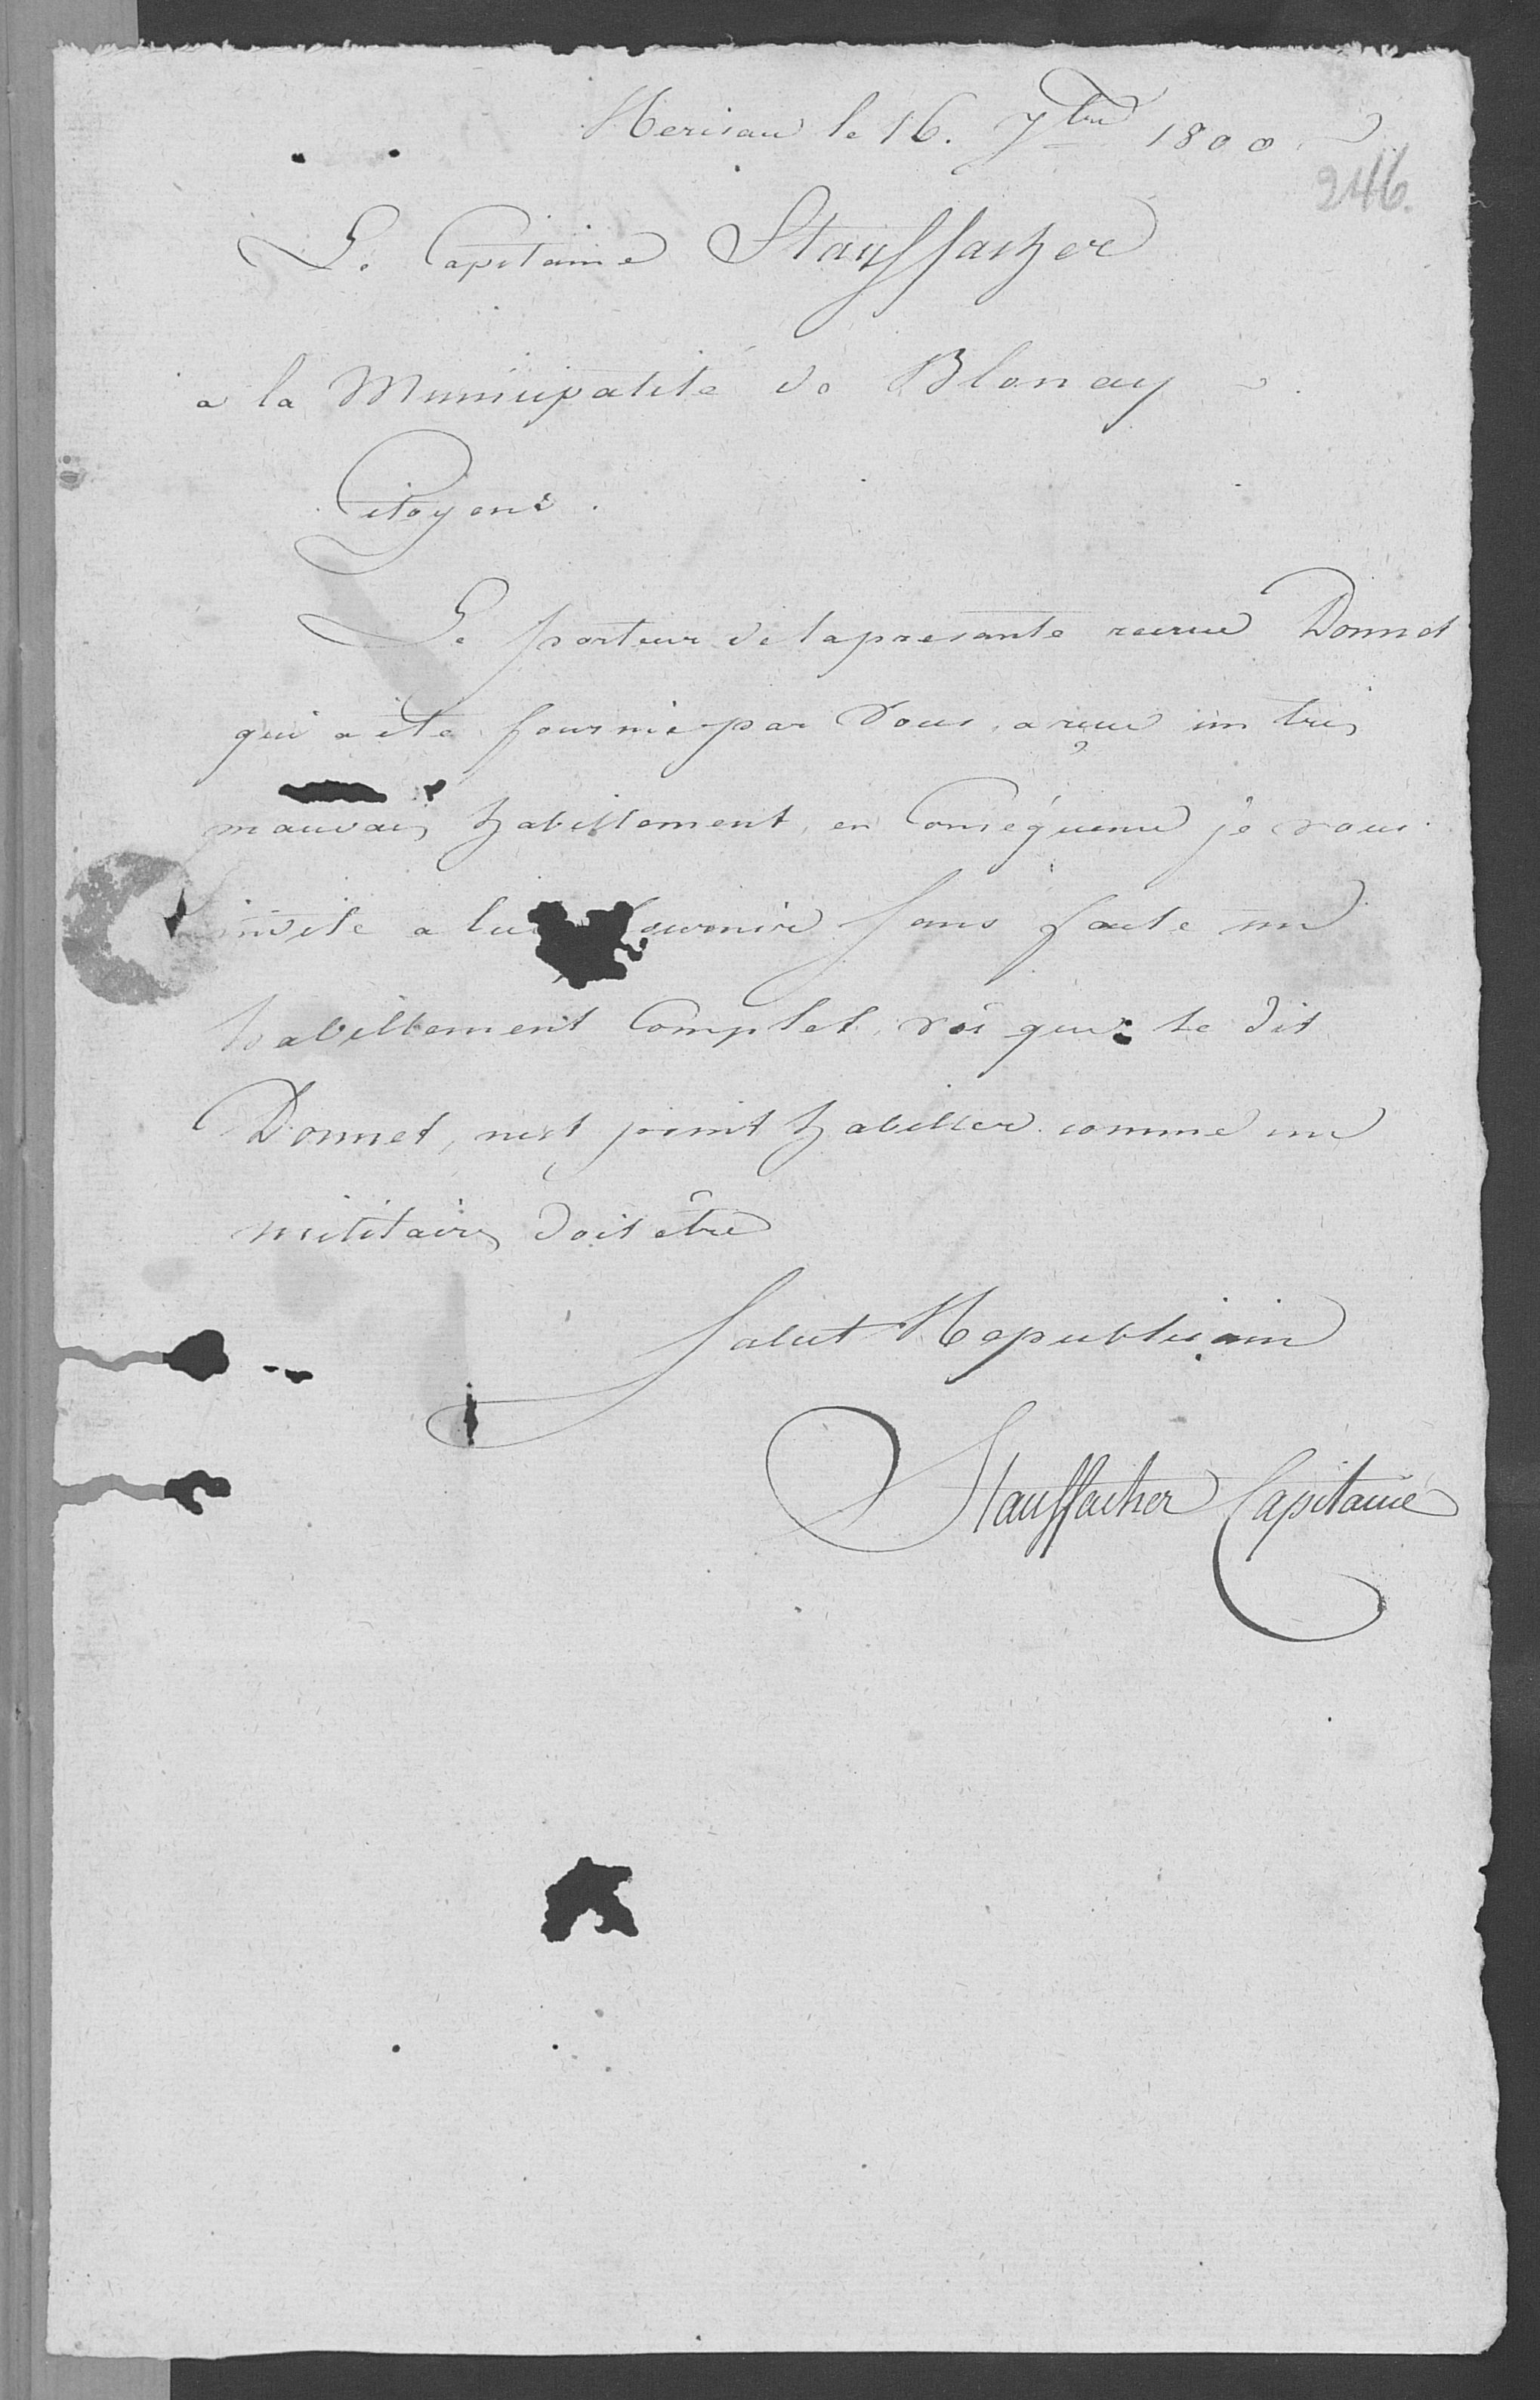 Herisau le 16. 7bre 1800
246.
Le Capitaine Stauffacher
a la Municipalité de Blonay
Citoyens.
Le porteur de la presante recrue Donnet
qui a ete fournie par Vous, a reçue un tres
mauvais habillement, en Conséquence je vous
invite a lui fournire sans faute un
habillement Complet, vû que le dit
Donnet, nest point habiller comme un
militaire doit être
Salut Republicain
Stauffacher Capitaine